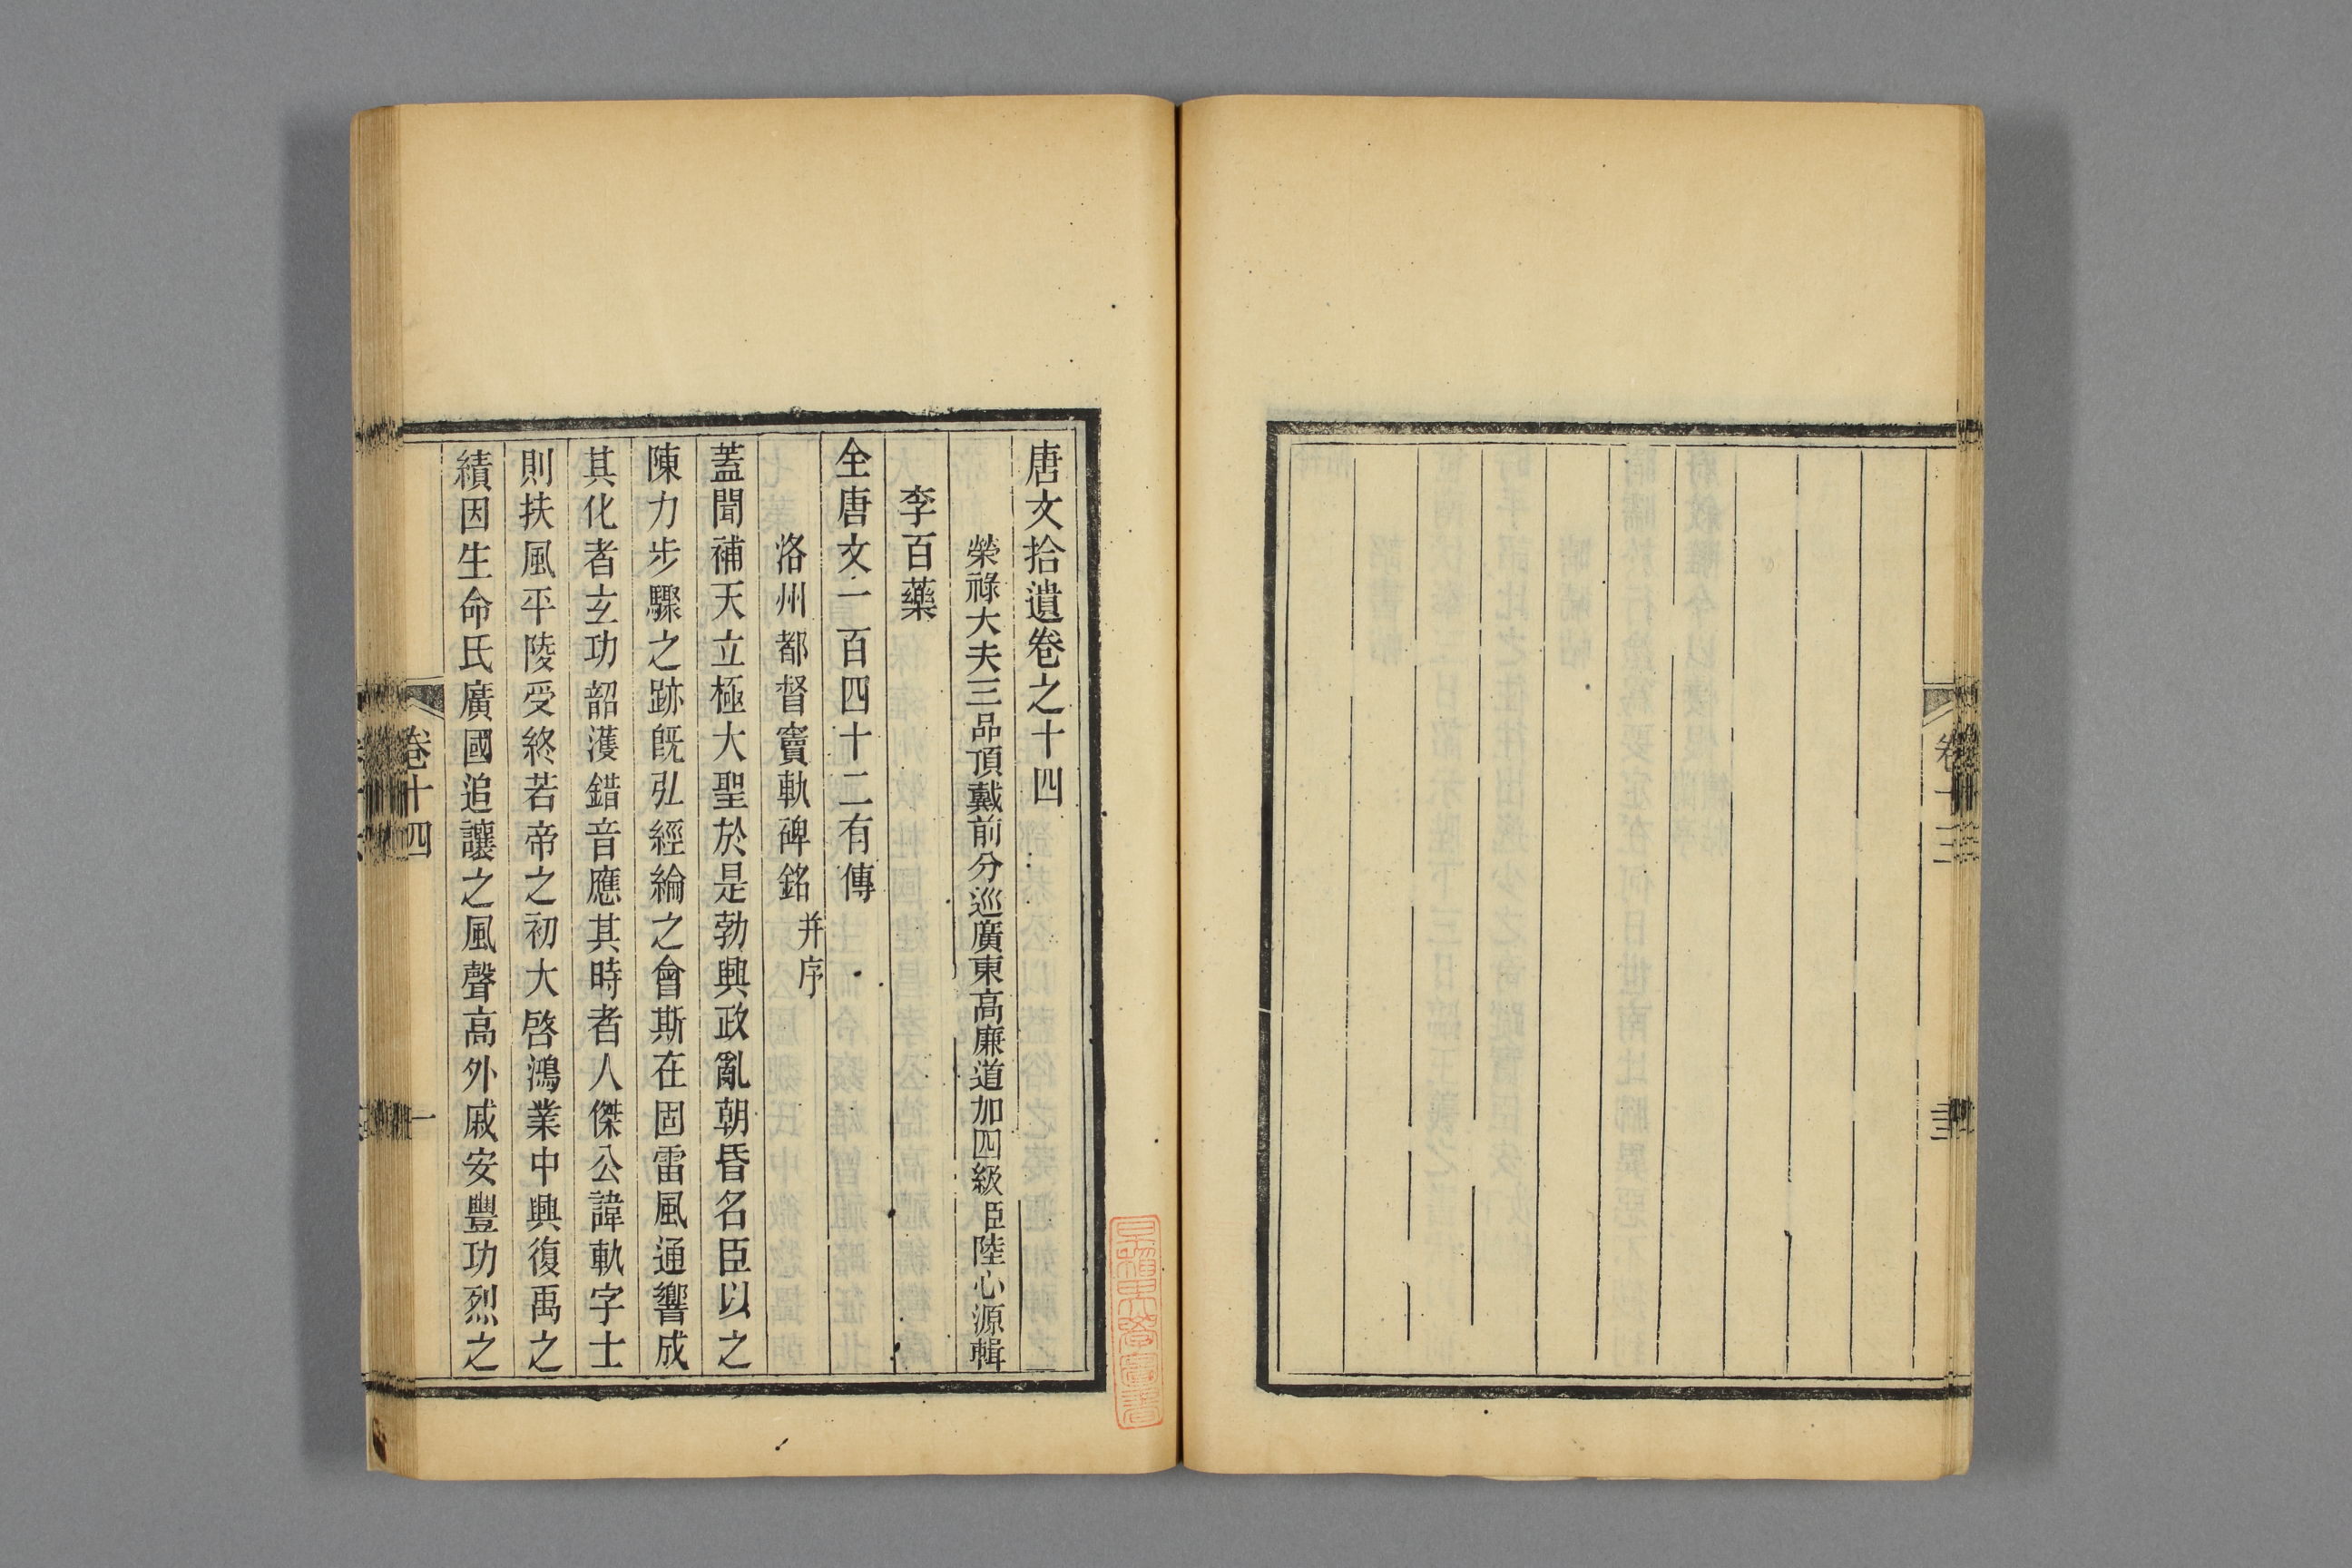 唐文拾遺卷之十四
榮祿大夫三品頂戴前分巡廣東高廉道加四級臣陸心源輯
李百藥
全唐文一百四十二有傳
洛州都督竇軌碑銘并序
蓋聞補天立極大聖於是勃興政亂朝昏名臣以之
陳力步驟之跡旣弘經綸之會斯在固雷風通響成
其化者玄功韶濩錯音應其時者人傑公諱軌字士
則扶風平陵受終若帝之初大啓鴻業中興復禹之
績因生命氏廣國追讓之風聲高外戚安豐功烈之
卷十四
一